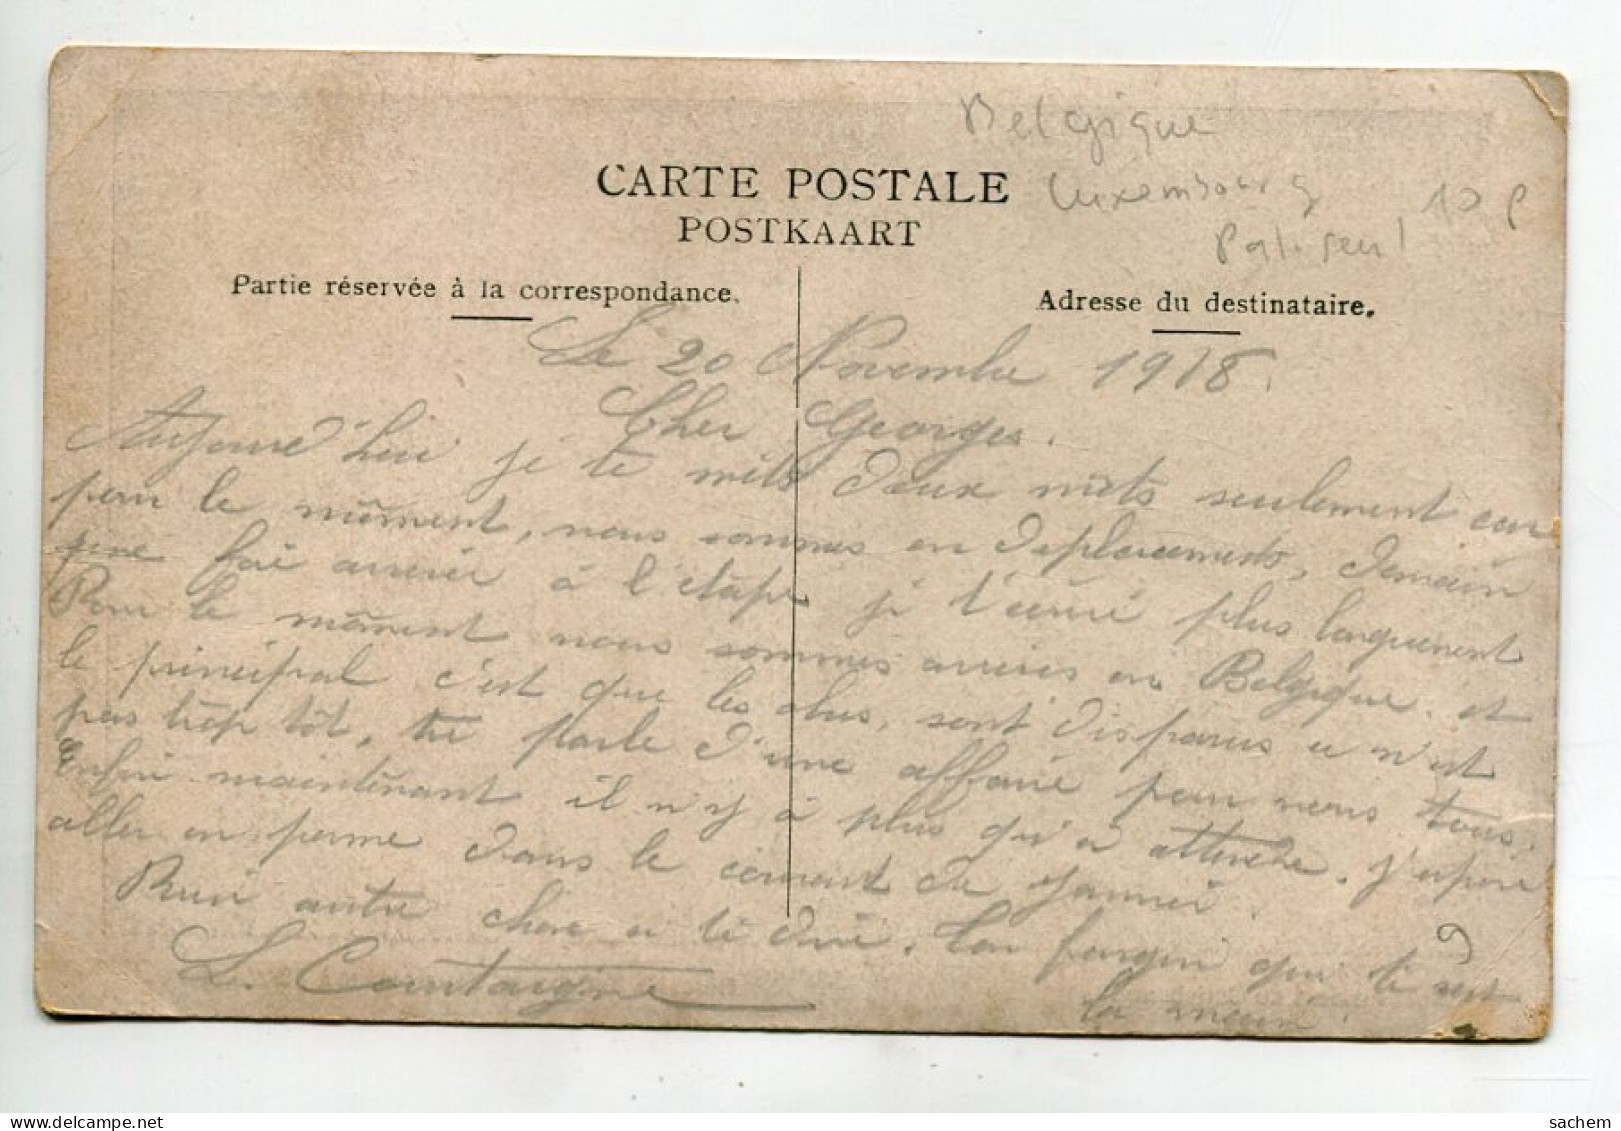 Belgique
Luxembourg
10 P
CARTE POSTALE
POSTKAART
Partie réservée à la correspondance.
Adresse du destinataire.
Le 20 Novembre 1918.
Cher Georges.
Aujourd'hui je te mèts deux mots seulement car
pour le mōment, nous sommes en deplacements, demain
arriver à l'étape je t'écriré plus longuement
Pour le mōment nous sommes arrivés en Belgique. et
le principal c'est que les obus, sont disparus ce n'est
pas trop tôt, tu parle d'une affaire pour nous tous.
Enfin maintenant il n'y à plus qu'a attendre. J'espère
aller en perme dans le courant de Janvier.
Rien autre chose a te dire. Ton frangin qui te sert
la main.
L. Cantaigne
9
sachem
delcampe.net